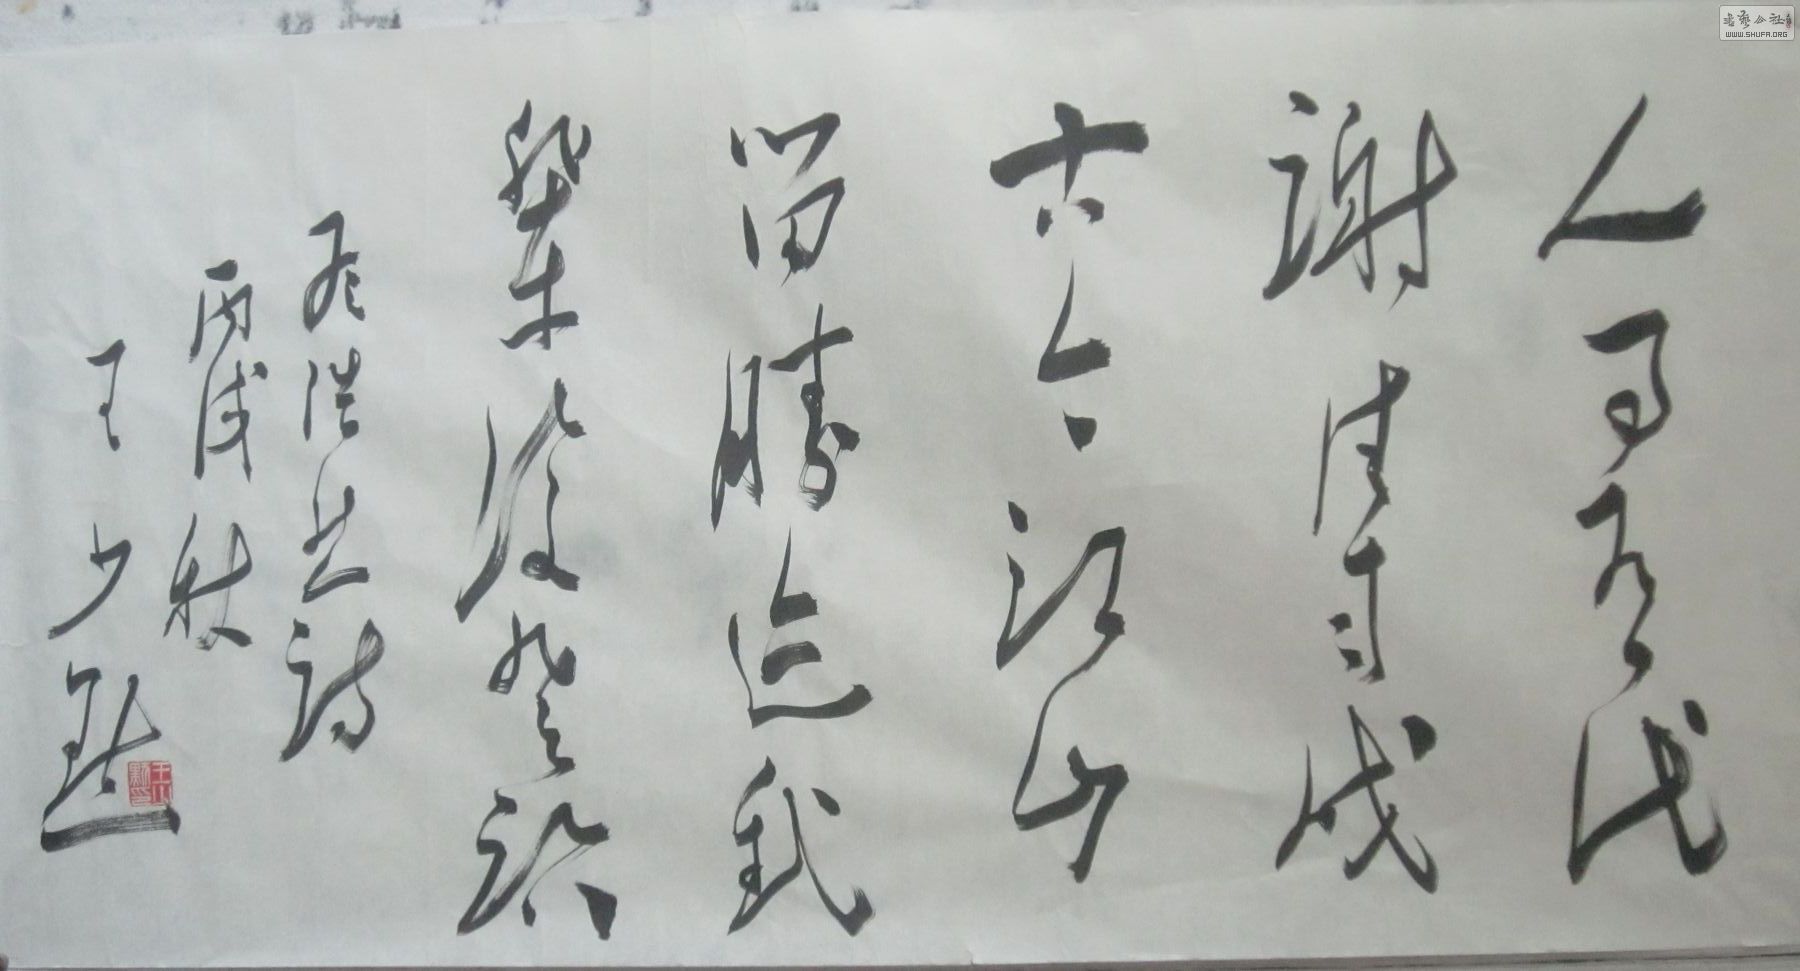 人事有代
謝往来成
古今江山
留勝迹我
輩復登臨
孟浩然詩
丙戌秋
王少
書藝公社
WWW.SHUFA.ORG